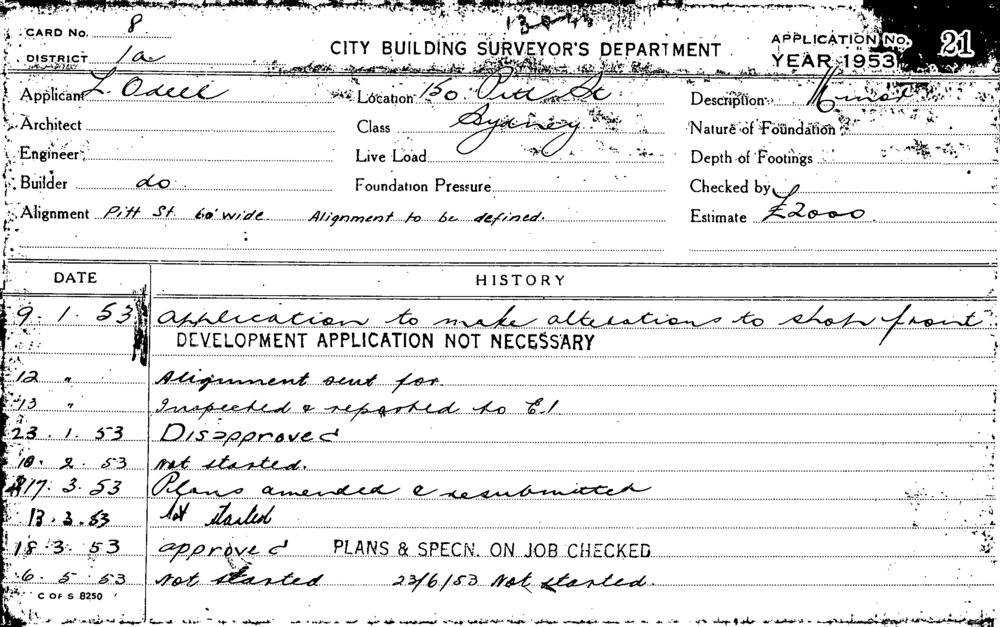 CARD No. 8
DISTRICT 1a
CITY BUILDING SURVEYOR'S DEPARTMENT
APPLICATION No. 21
YEAR 1953
Applicant L. Odell Location 150 Pitt St Description Minor
Architect Class Sydney Nature of Foundation
Engineer Live Load Depth of Footings
Builder do Foundation Pressure Checked by
Alignment Pitt St 60' wide. Alignment to be defined. Estimate £2000
DATE HISTORY
9. 1. 53 Application to make alterations to shop front
DEVELOPMENT APPLICATION NOT NECESSARY
12 " Alignment sent for
13 " Inspected & reported to E.I
23. 1. 53 Disapproved
10. 2. 53 Not started.
17. 3. 53 Plans amended & resubmitted
13. 3. 53 Not started
18. 3. 53 approved PLANS & SPECN. ON JOB CHECKED
6. 5 53 Not started 23/6/53 Not started.
C OF S 8250